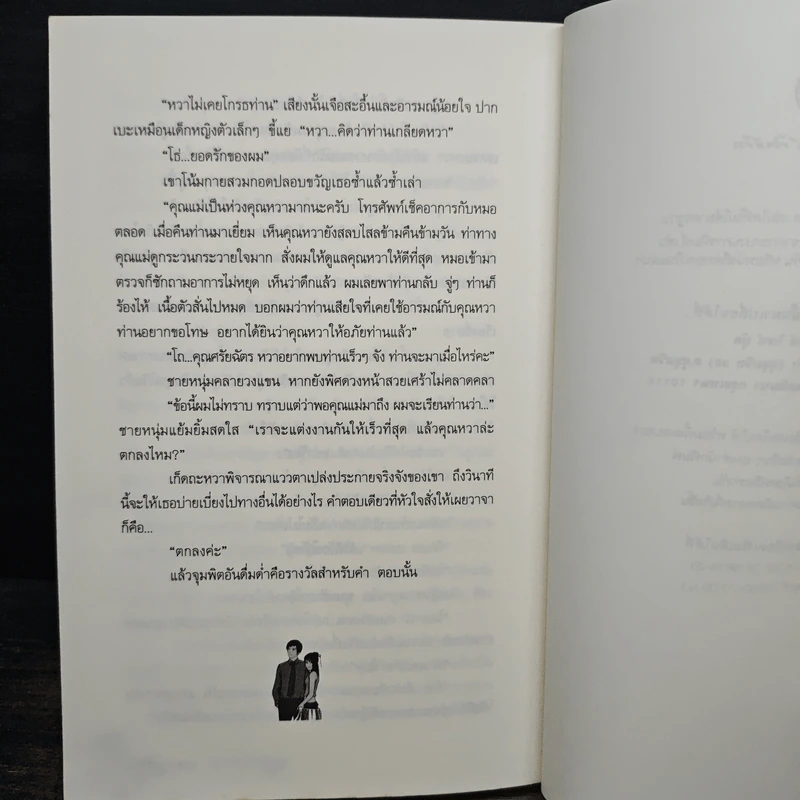 “หวาไม่เคยโกรธท่าน” เสียงนั้นเจือสะอื้นและอารมณ์น้อยใจ ปาก
เบะเหมือนเด็กหญิงตัวเล็กๆ ขี้แย “หวา...คิดว่าท่านเกลียดหวา”
“โธ่...ยอดรักของผม”
เขาโน้มกายสวมกอดปลอบขวัญเธอซ้ำแล้วซ้ำเล่า
“คุณแม่เป็นห่วงคุณหวามากนะครับ โทรศัพท์เช็คอาการกับหมอ
ตลอด เมื่อคืนท่านมาเยี่ยม เห็นคุณหวายังสลบไสลข้ามคืนข้ามวัน ท่าทาง
คุณแม่ดูกระวนกระวายใจมาก สั่งผมให้ดูแลคุณหวาให้ดีที่สุด หมอเข้ามา
ตรวจก็ซักถามอาการไม่หยุด เห็นว่าดึกแล้ว ผมเลยพาท่านกลับ จู่ๆ ท่านก็
ร้องไห้ เนื้อตัวสั่นไปหมด บอกผมว่าท่านเสียใจที่เคยใช้อารมณ์กับคุณหวา
ท่านอยากขอโทษ อยากได้ยินว่าคุณหวาให้อภัยท่านแล้ว”
“โถ...คุณศรัยฉัตร หวาอยากพบท่านเร็วๆ จัง ท่านจะมาเมื่อไหร่คะ”
ชายหนุ่มคลายวงแขน หากยังพิศดวงหน้าสวยเศร้าไม่คลาดคลา
“ข้อนี้ผมไม่ทราบ ทราบแต่ว่าพอคุณแม่มาถึง ผมจะเรียนท่านว่า...”
ชายหนุ่มแย้มยิ้มสดใส “เราจะแต่งงานกันให้เร็วที่สุด แล้วคุณหวาล่ะ
ตกลงไหม?”
เก็ดถะหวาพิจารณาแววตาเปล่งประกายจริงจังของเขา ถึงวินาที
นี้จะให้เธอบ่ายเบี่ยงไปทางอื่นได้อย่างไร คำตอบเดียวที่หัวใจสั่งให้เผยวาจา
ก็คือ...
“ตกลงค่ะ”
แล้วจุมพิตอันดื่มด่ำคือรางวัลสำหรับคำ ตอบนั้น